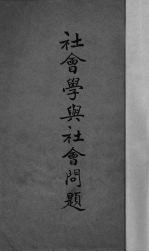 社會學與社會問題